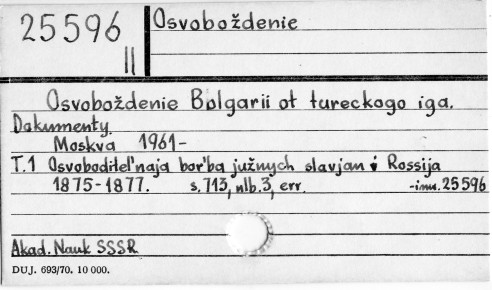 25596
II
Osvoboždenie
Osvoboždenie Bolgarii ot tureckogo iga.
Dokumenty.
Moskva 1961-
T.1 Osvoboditel'naja bor'ba južnych slavjan i Rossija
1875-1877. s. 713, nlb. 3, err. -inu. 25596
Akad. Nauk SSSR
DUJ. 693/70. 10 000.